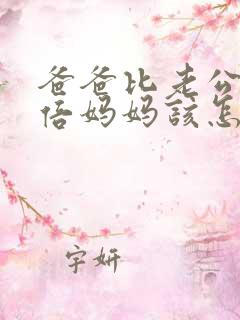 爸爸比老公
倍妈妈該怎
宇妍